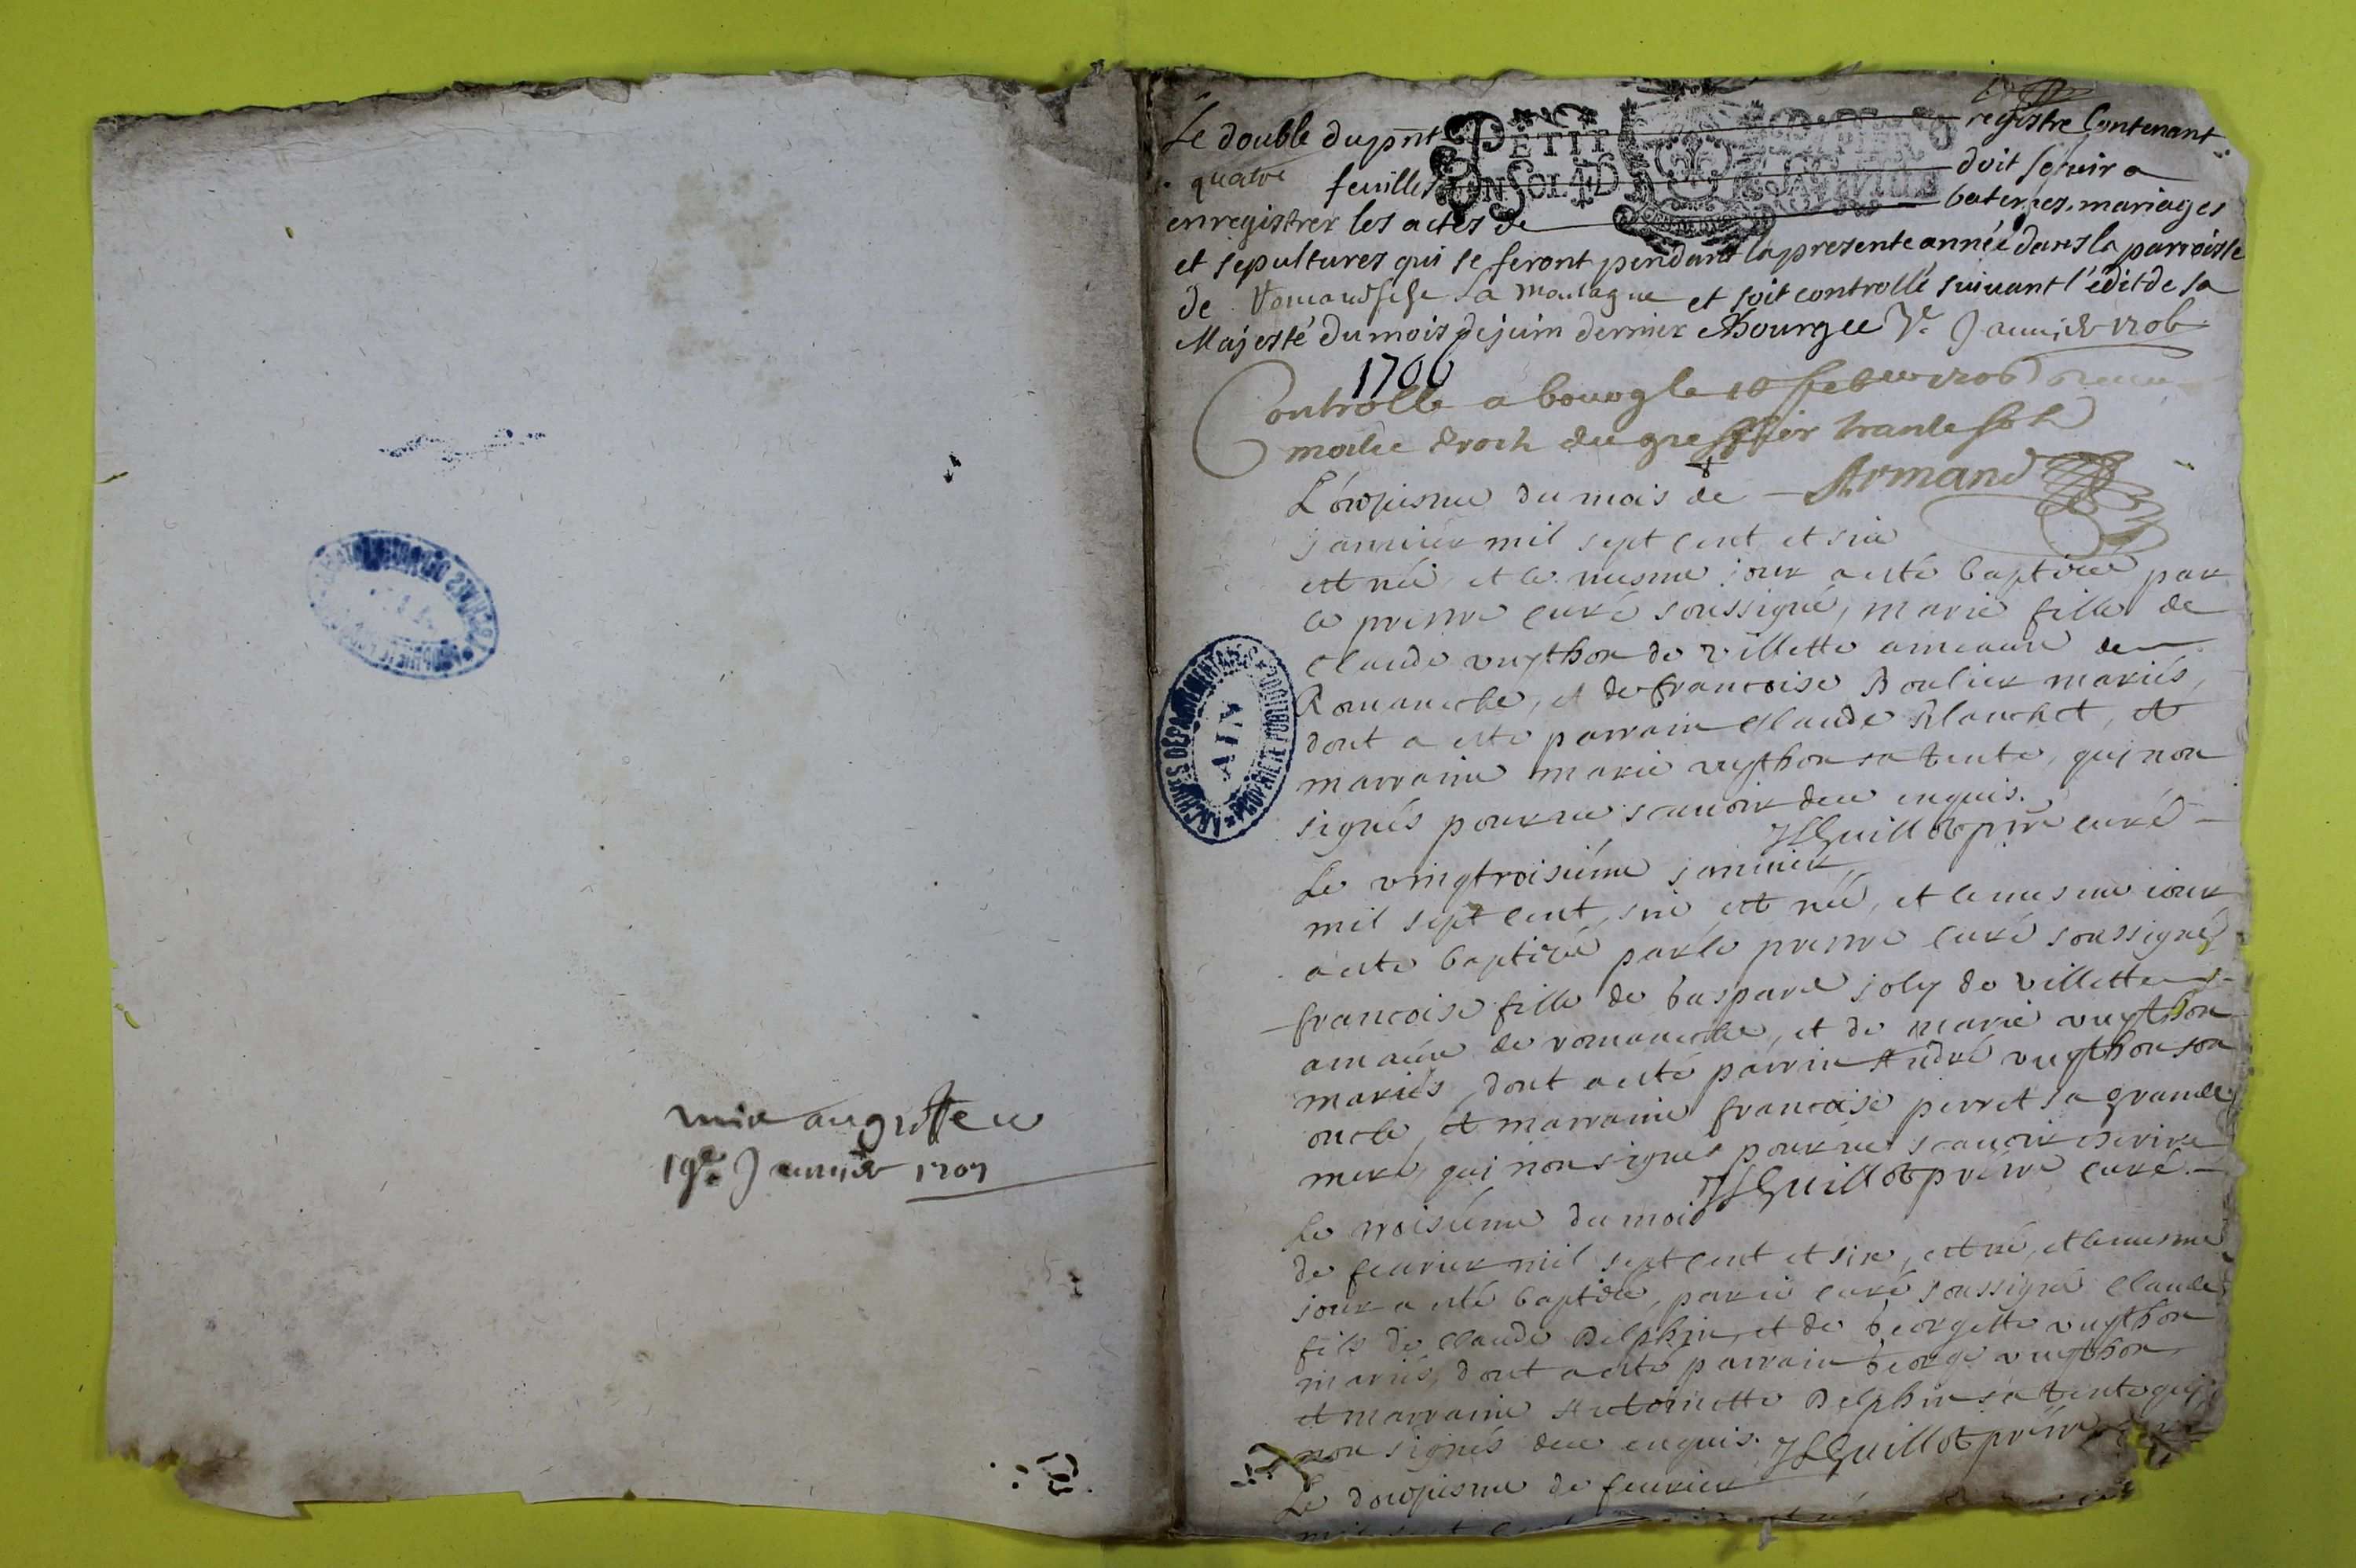 mis au greffe ce
19e Janvier 1707
Le double du pnt registre Contenant
quatre feuilles doit servir a
enregistrer les actes de batemes, mariages
et sepultures qui se feront pendant la presente année dans la parroisse
de Romanesche La Montagne et soit controllé suivant l'édit de sa
Majesté du mois de juin dernier A bourg ce Janvier 1706
PETIT
EN SOL 4D
1706
Controllé a bourg le 10 febvrier 1706
moitie droit du greffier trante sols
Armand
L'onzjesme du mois de
janvier mil sept cent et six
est née, et le mesme jour a esté baptizée par
le prestre curé soussigné, marie fille de
Claude vuython de villette ameaux de
Romanesche, et de francoise Boulier mariés,
dont a esté parrain Claude Blanchet, et
marraine marie vuython sa tente, qui non
signés pour ne scavoir deue enquis.
Guillot ptre curé
Le vingtroisiéme janvier
mil sept cent, six est née, et le mesme iour
a esté baptizée par le prestre curé soussigné
francoise fille de Gaspard joly de villette
amaux de romanesche, et de marie vuython
mariés, dont a esté parrin André vuython son
oncle, et marraine francoise perret sa grande
mere, qui non signés pour ne scavoir escrire
Guillot prestre curé
Le troisiéme du mois
de feurier mil sept cent et six, est né, et le mesme
jour a esté baptizé, par le curé soussigné Claude
fils de Claude Delphin, et de Georgette vuython
mariés, dont a esté parrain George vuython
et marraine Antoinette Delphin sa tente qui
non signés deue enquis. Guillot prestre
Le douzjesme de feurier
ARCHIVES DÉPARTEMENTALES
AIN
PROPRIÉTÉ PUBLIQUE